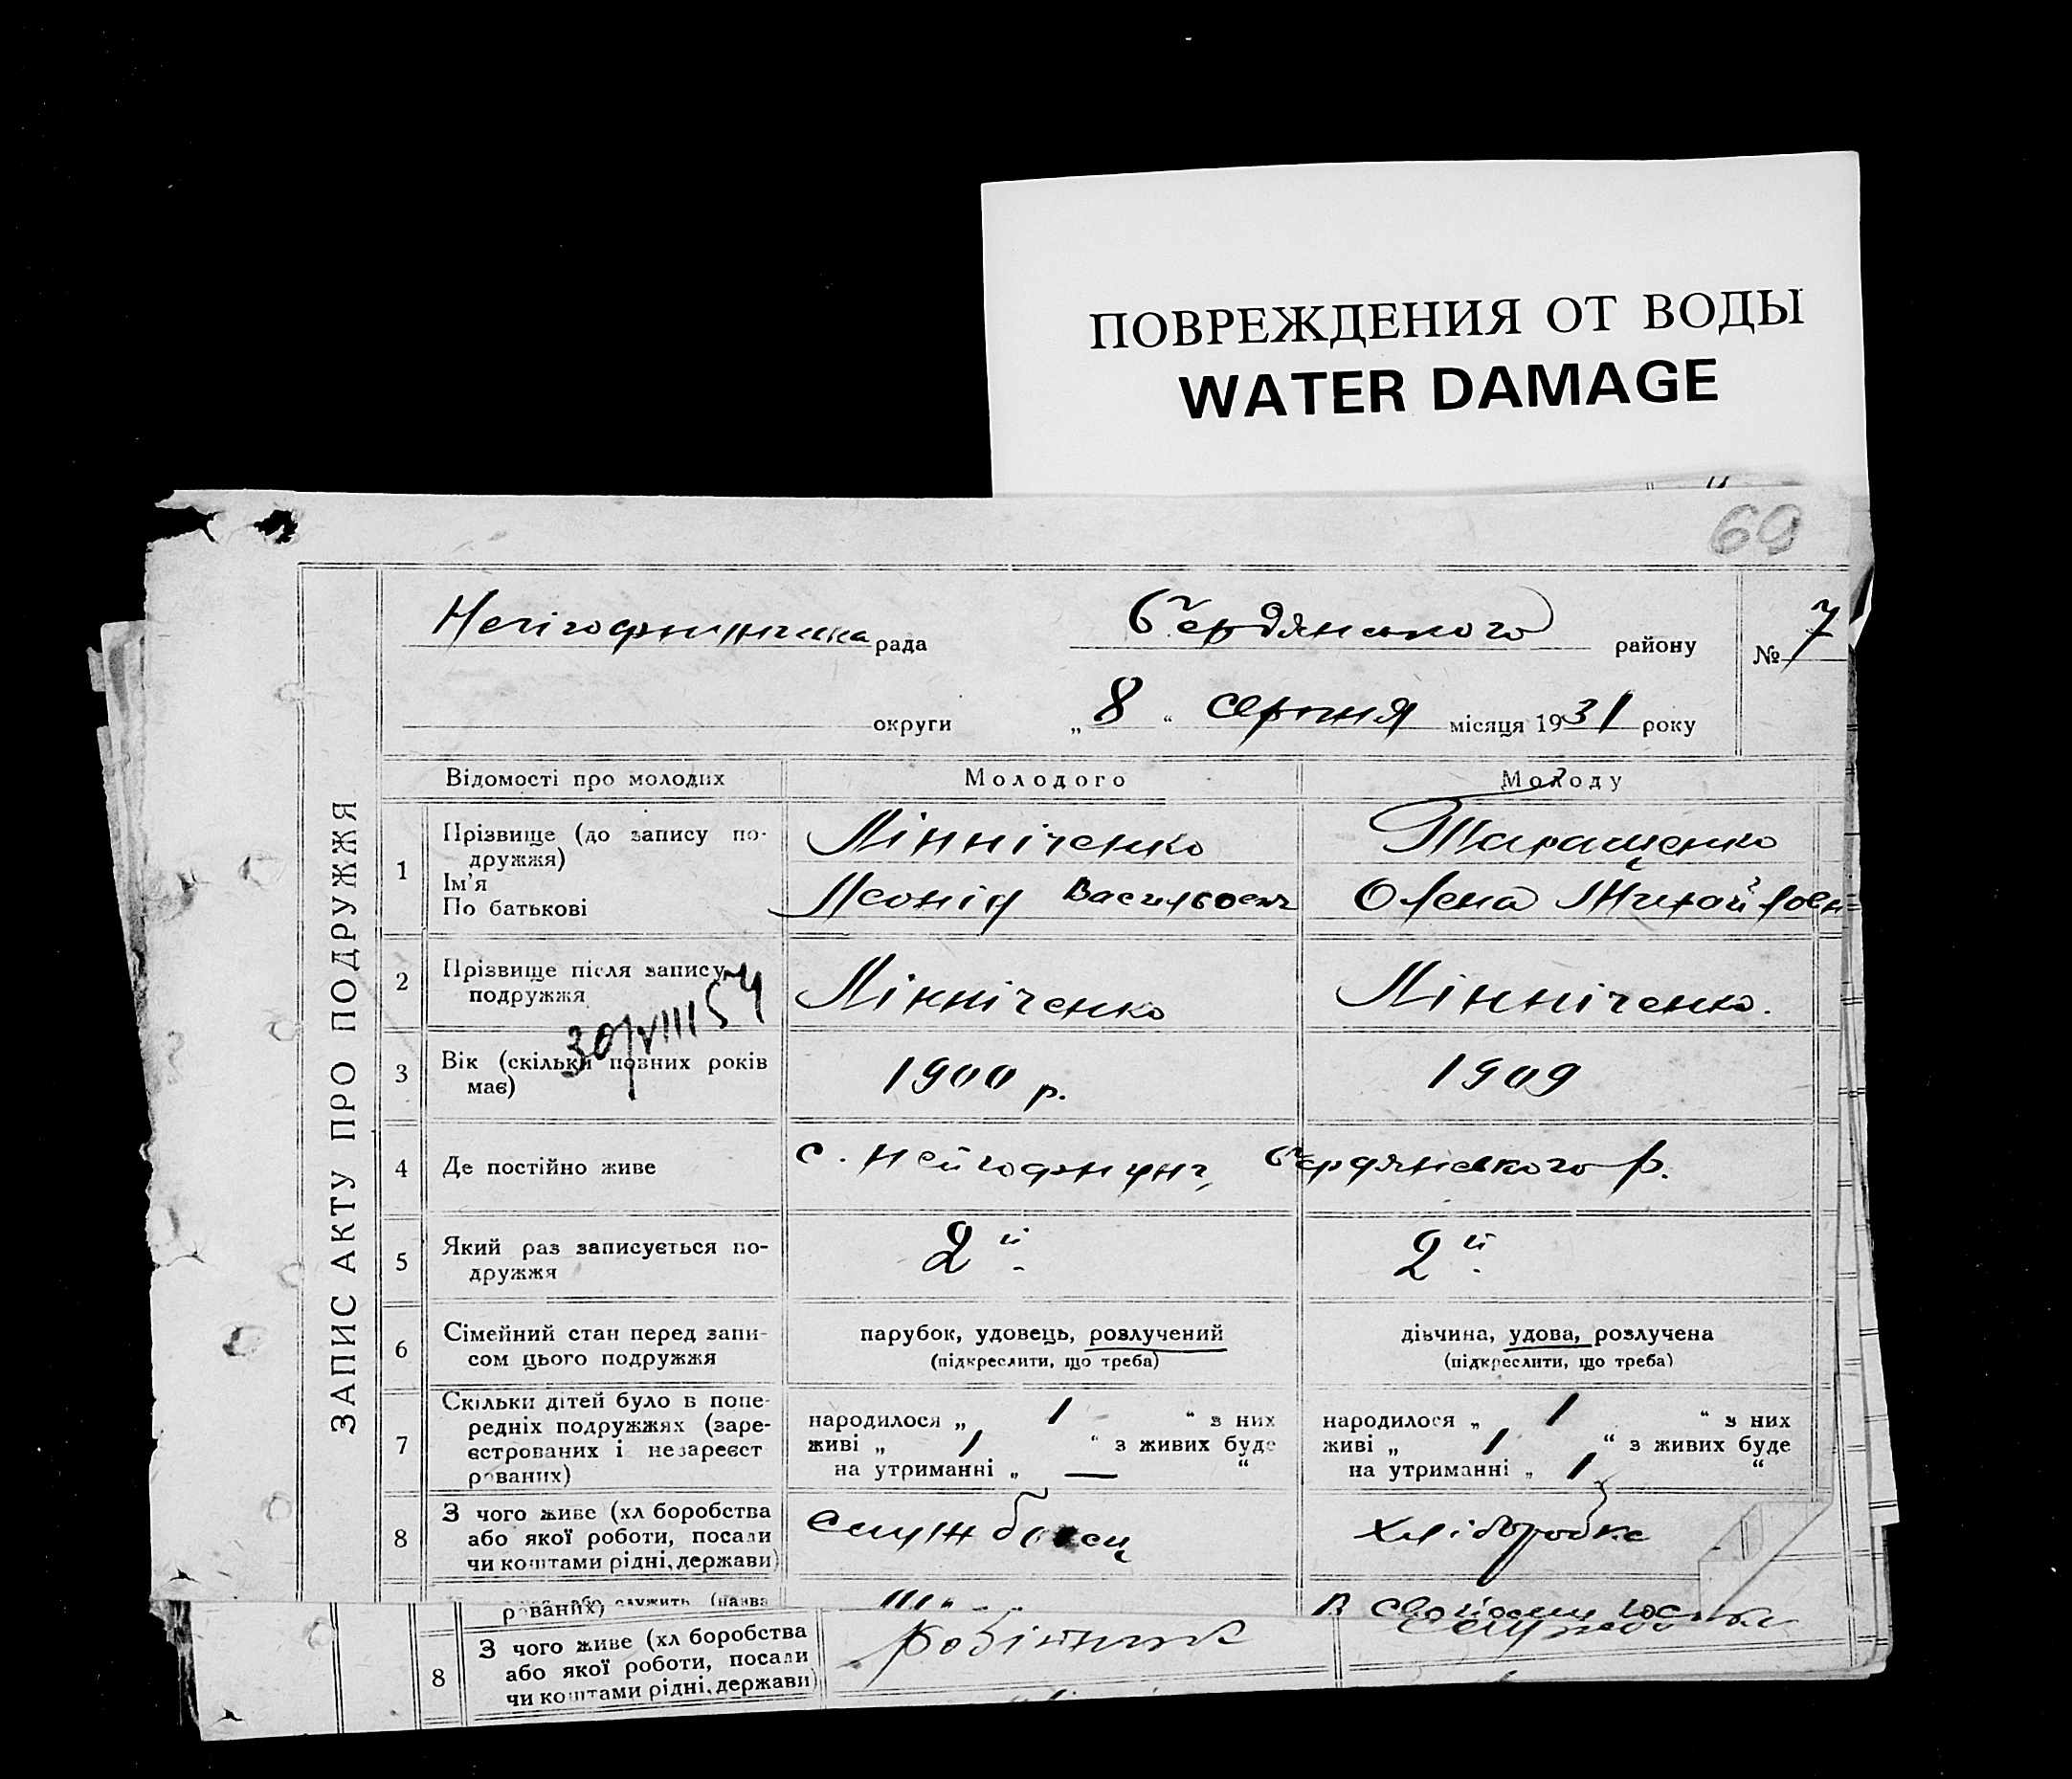 ПОВРЕЖДЕНИЯ ОТ ВОДЫ
WATER DAMAGE
69
ЗАПИС АКТУ ПРО ПОДРУЖЖЯ
рада Бердянського району № 7
округи „ 8 “ серпня місяця 1931 року
Відомості про молодих Молодого Молоду
1 Прізвище (до запису по-
дружжя)
Ім'я
По батькові
Лінніченко Таращенко
Леонід Васильович Олена Михайловн
2 Прізвище після запису
подружжя
Лінніченко Лінніченко.
30/VIII 54
3 Вік (скільки повних років
має)
1900 р. 1909
4 Де постійно живе
с. Нейгофнунг, Бердянського р.
5 Який раз записується по-
дружжя
2й 2й
6 Сімейний стан перед запи-
сом цього подружжя
парубок, удовець, розлучений дівчина, удова, розлучена
(підкреслити, що треба) (підкреслити, що треба)
7 Скільки дітей було в попе-
редніх подружжях (заре-
єстрованих і незареєст
рованих)
народилося „ 1 “ з них народилося „ 1 “ з них
живі „ 1 “ з живих буде живі „ 1 “ з живих буде
на утриманні „ — “ на утриманні „ 1 “
8 З чого живе (хл боробства
або якої роботи, посали
чи коштами рідні, держави)
службовец хліборобка
рованих) або служить (назва
в свойому
8 З чого живе (хл боробства
або якої роботи, посали
чи коштами рідні, держави)
робітник